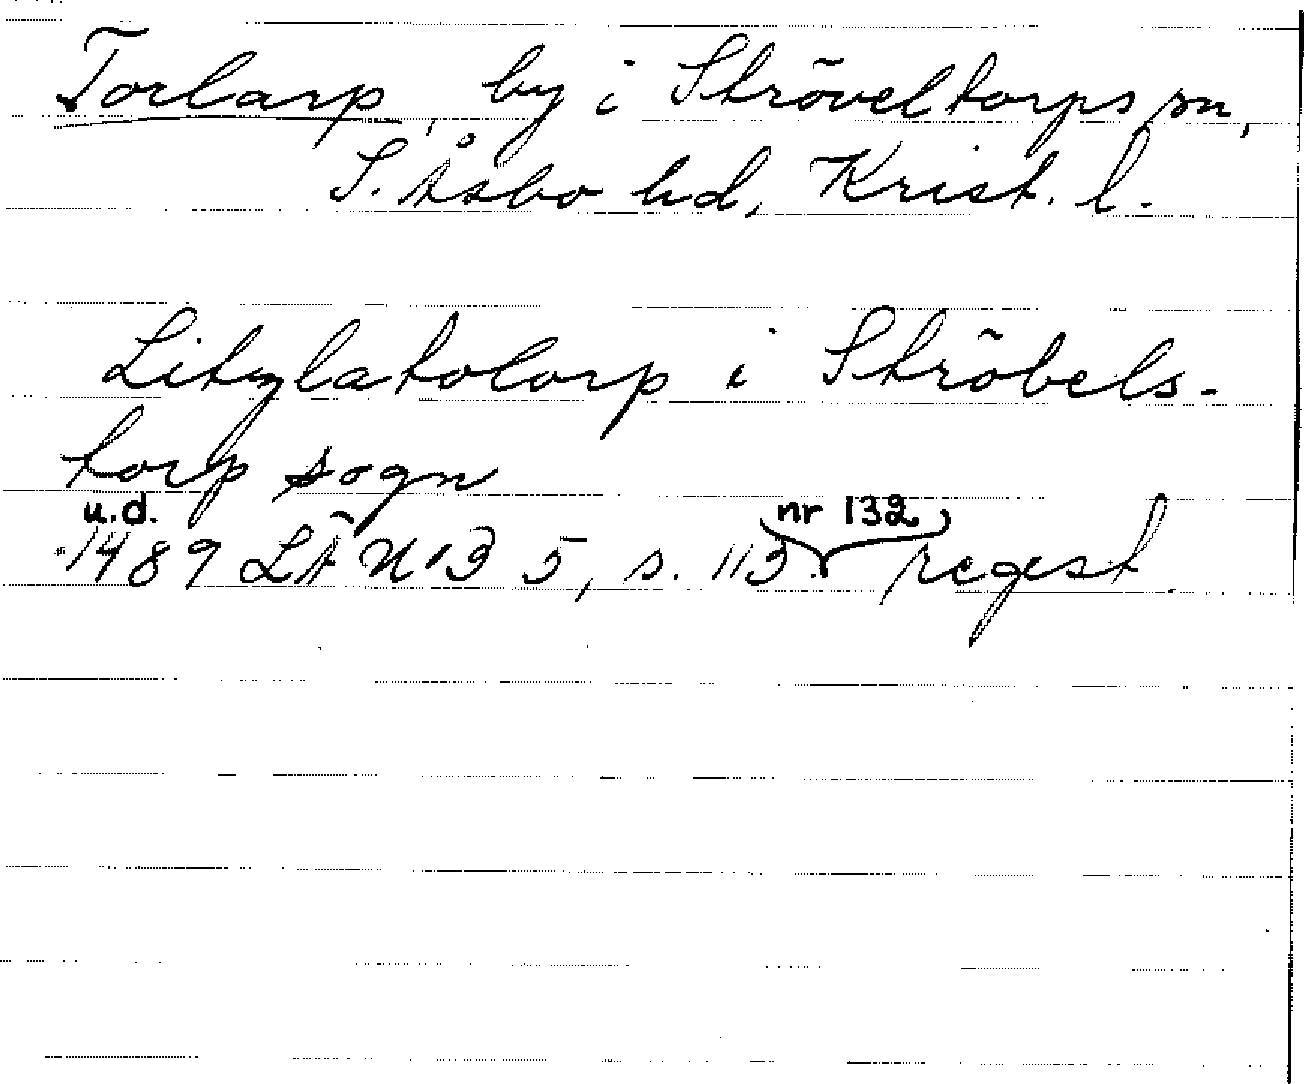 Torlarp, by i Ströveltorps sn,
S. Åsbo hd, Krist. l.
Litzlatolarp i Ströbels-
torp sogn
u.d. nr 132
1489 LÄ N:3 5, s. 113. regest